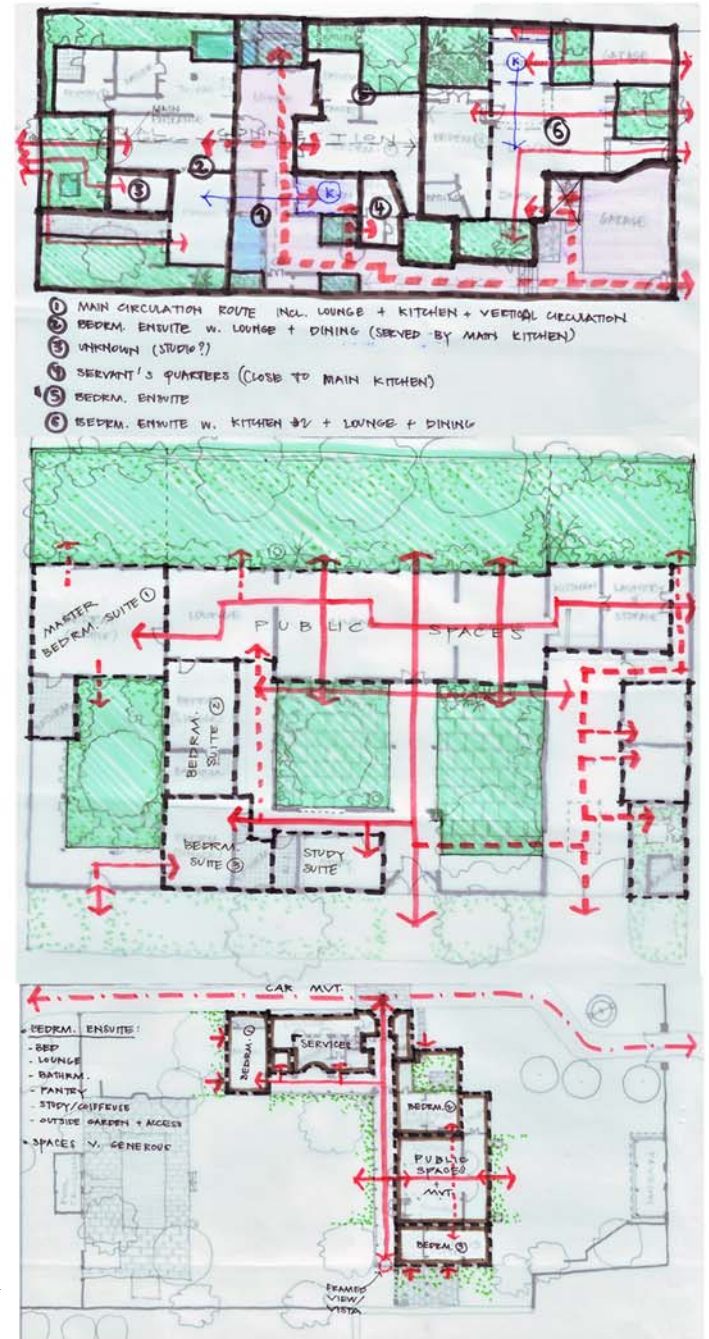 GARAGE
K
MAIN
ENTRANCE
6
5
2
3
1
K
4
GARAGE
① MAIN CIRCULATION ROUTE INCL. LOUNGE + KITCHEN + VERTICAL CIRCULATION
② BEDRM. ENSUITE W. LOUNGE + DINING (SERVED BY MAIN KITCHEN)
③ UNKNOWN (STUDIO?)
④ SERVANT'S QUARTERS (CLOSE TO MAIN KITCHEN)
⑤ BEDRM. ENSUITE
⑥ BEDRM. ENSUITE W. KITCHEN #2 + LOUNGE + DINING
MASTER
BEDRM. SUITE ①
LOUNGE
PUBLIC SPACES
KITCHEN
LAUNDRY
STORAGE
BEDRM.
SUITE ②
BEDRM.
SUITE ③
STUDY
SUITE
CAR MVT.
BEDRM. ENSUITE:
- BED
- LOUNGE
- BATHRM.
- PANTRY
- STUDY/COIFFEUSE
- OUTSIDE GARDEN + ACCESS
SPACES V. GENEROUS
BEDRM.
SERVICES
BEDRM.
PUBLIC
SPACES
+
MVT.
BEDRM. ③
FRAMED
VIEW/
VISTA